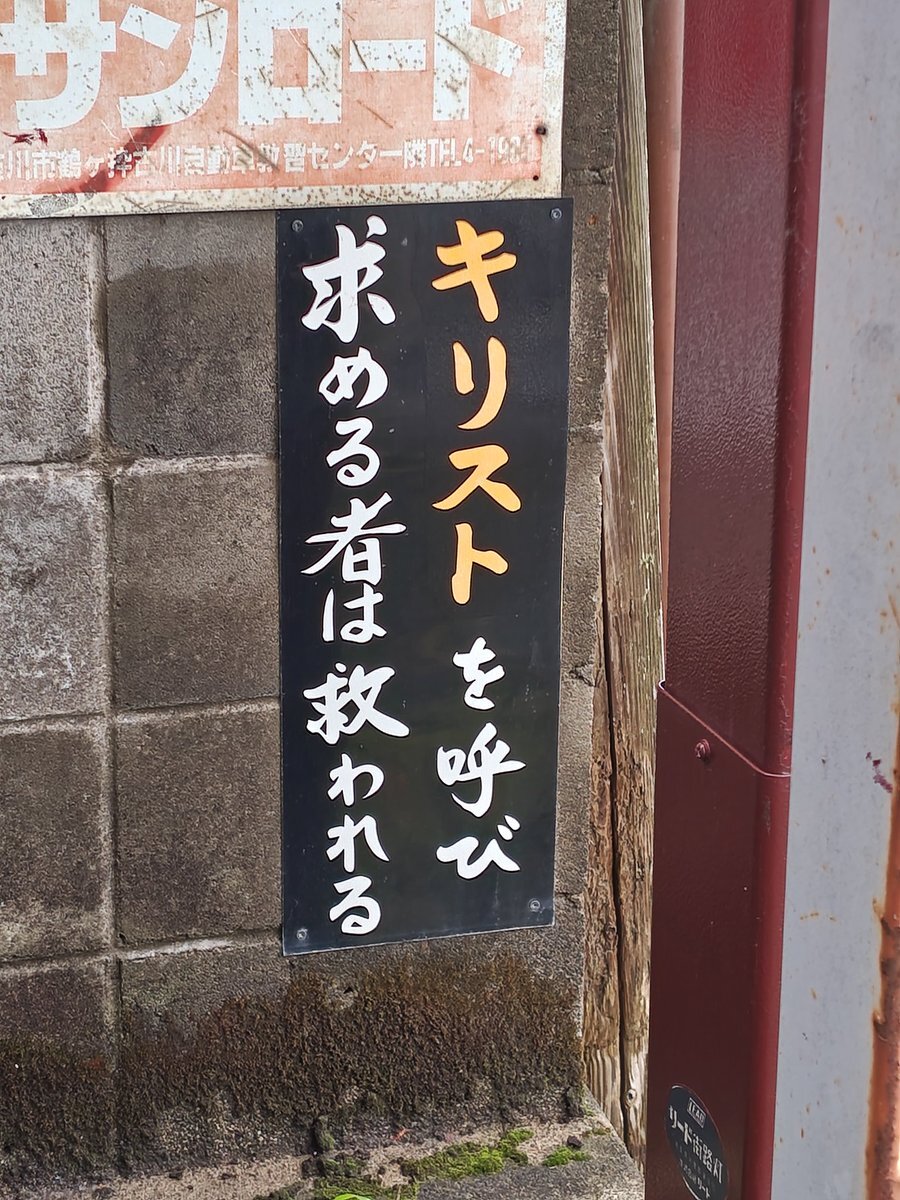 サンロード
川市鶴ヶ埣古川自動車教習センター隣TEL4-198
キリストを呼び
求める者は救われる
リード街路灯